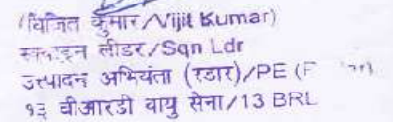 (विजित कुमार/Vijit Kumar)
स्क्वाड्रन लीडर/Sqn Ldr
उत्पादन अभियंता (रडार)/PE (
१३ बीआरडी वायु सेना/13 BRD